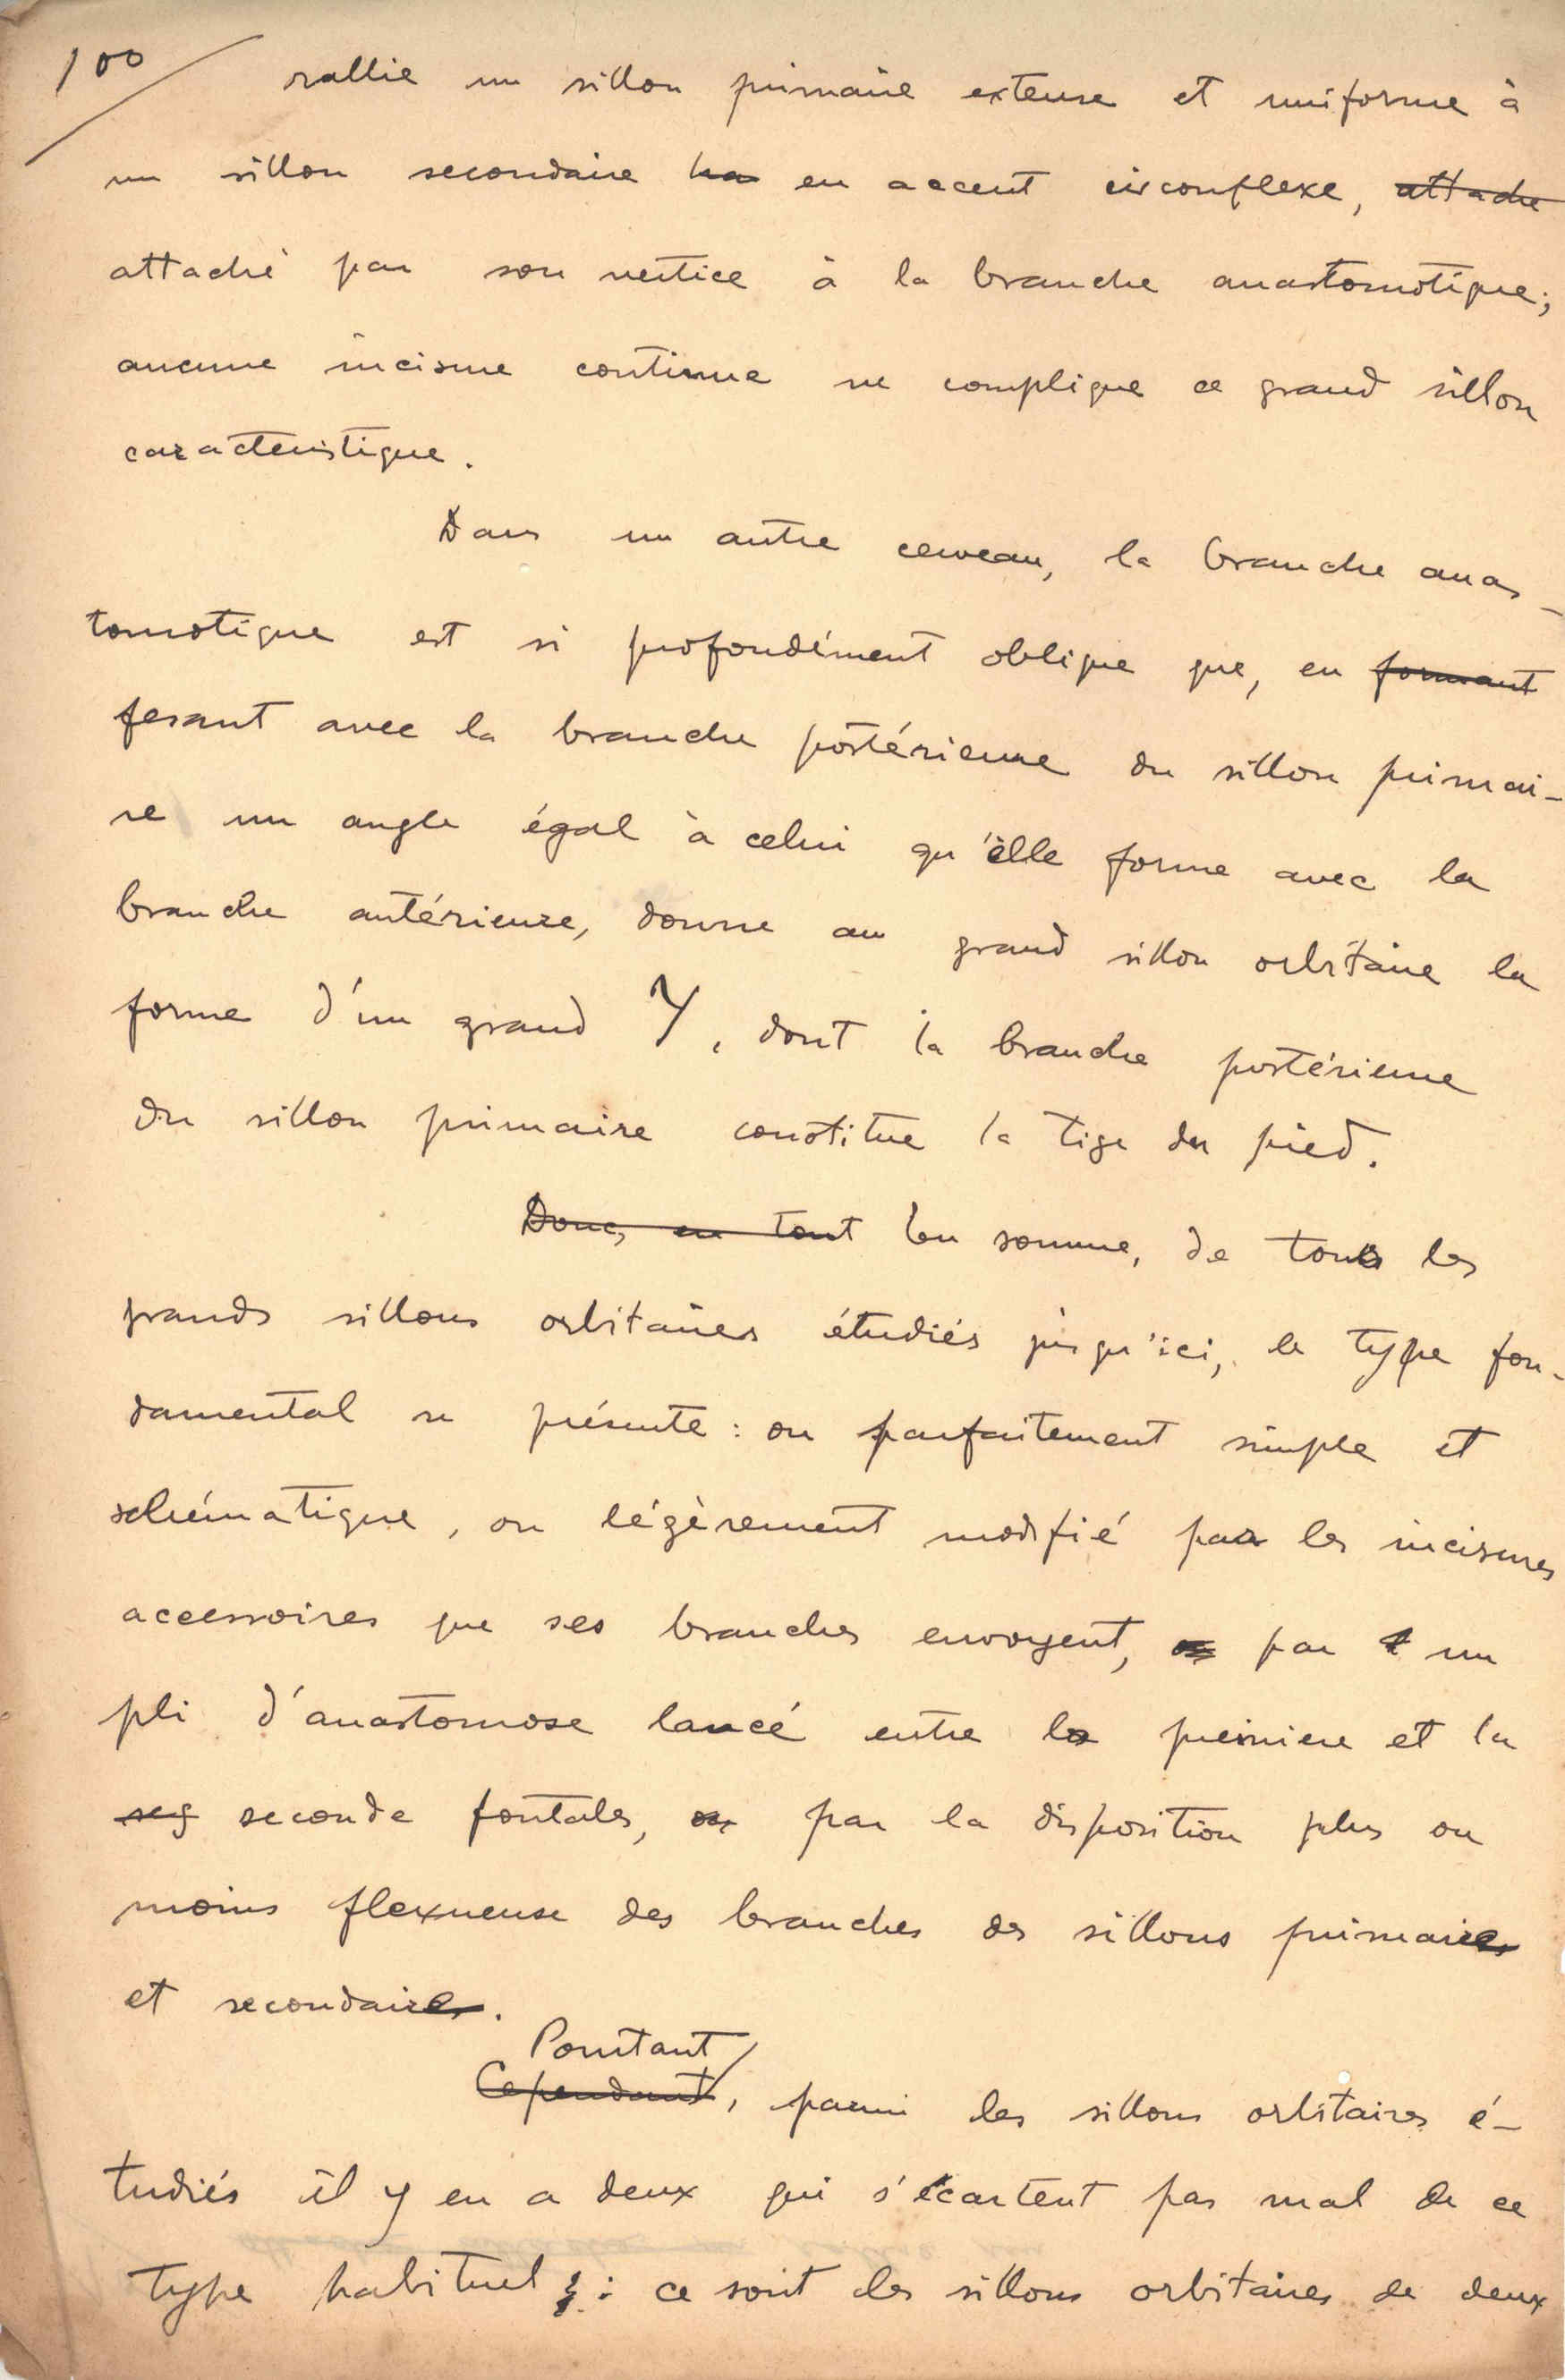 100/ rallie un sillon primaire externe et uniforme à
un sillon secondaire en accent circonflexe, attache
attaché par son vertice à la branche anastomotique;
aucune incisure continue ne complique ce grand sillon
caracteristique.
Dans un autre cerveau, la branche anas-
tomotique est si profondément oblique que, en formant
fesant avec la branche postérieure du sillon primai-
re un angle égal à celui qu'elle forme avec la
branche antérieure, donne au grand sillon orbitaire la
forme d'un grand Y, dont la branche postérieure
du sillon primaire constitue la tige du pied.
Donc, en tout En somme, de tous les
grands sillons orbitaires étudiés jusqu'ici, le type fon-
damental se présente: ou parfaitement simple et
schématique, ou légèrement modifié par les incisures
accessoires que ses branches envoyent, par un
pli d'anastomose lancé entre la première et la
seg seconde fontales, ou par la disposition plus ou
moins flexueuse des branches des sillons primaires
et secondaires.
Pourtant
Cependant, parmi les sillons orbitaires é-
tudiés il y en a deux qui s'écartent pas mal de ce
type habituel : ce sont les sillons orbitaires de deux